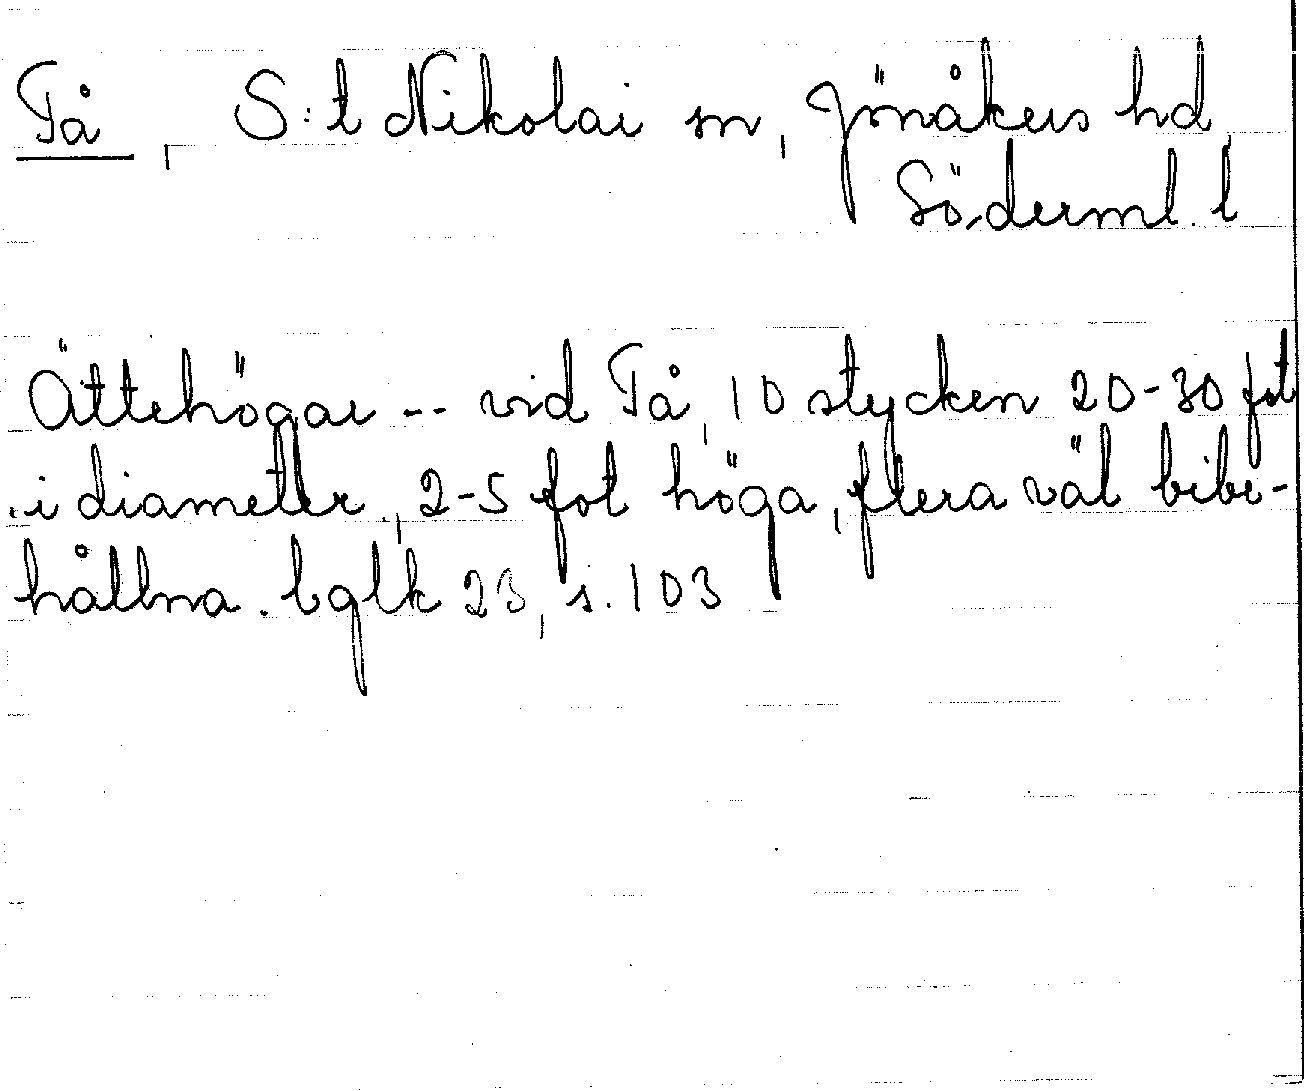 Tå, S:t Nikolai sn, Jönåkers hd,
Söderml. l
Ättehögar -- vid Tå, 10 stycken 20-30 fot
i diameter, 2-5 fot höga, flera väl bibe-
hållna. bglk 23, s. 103